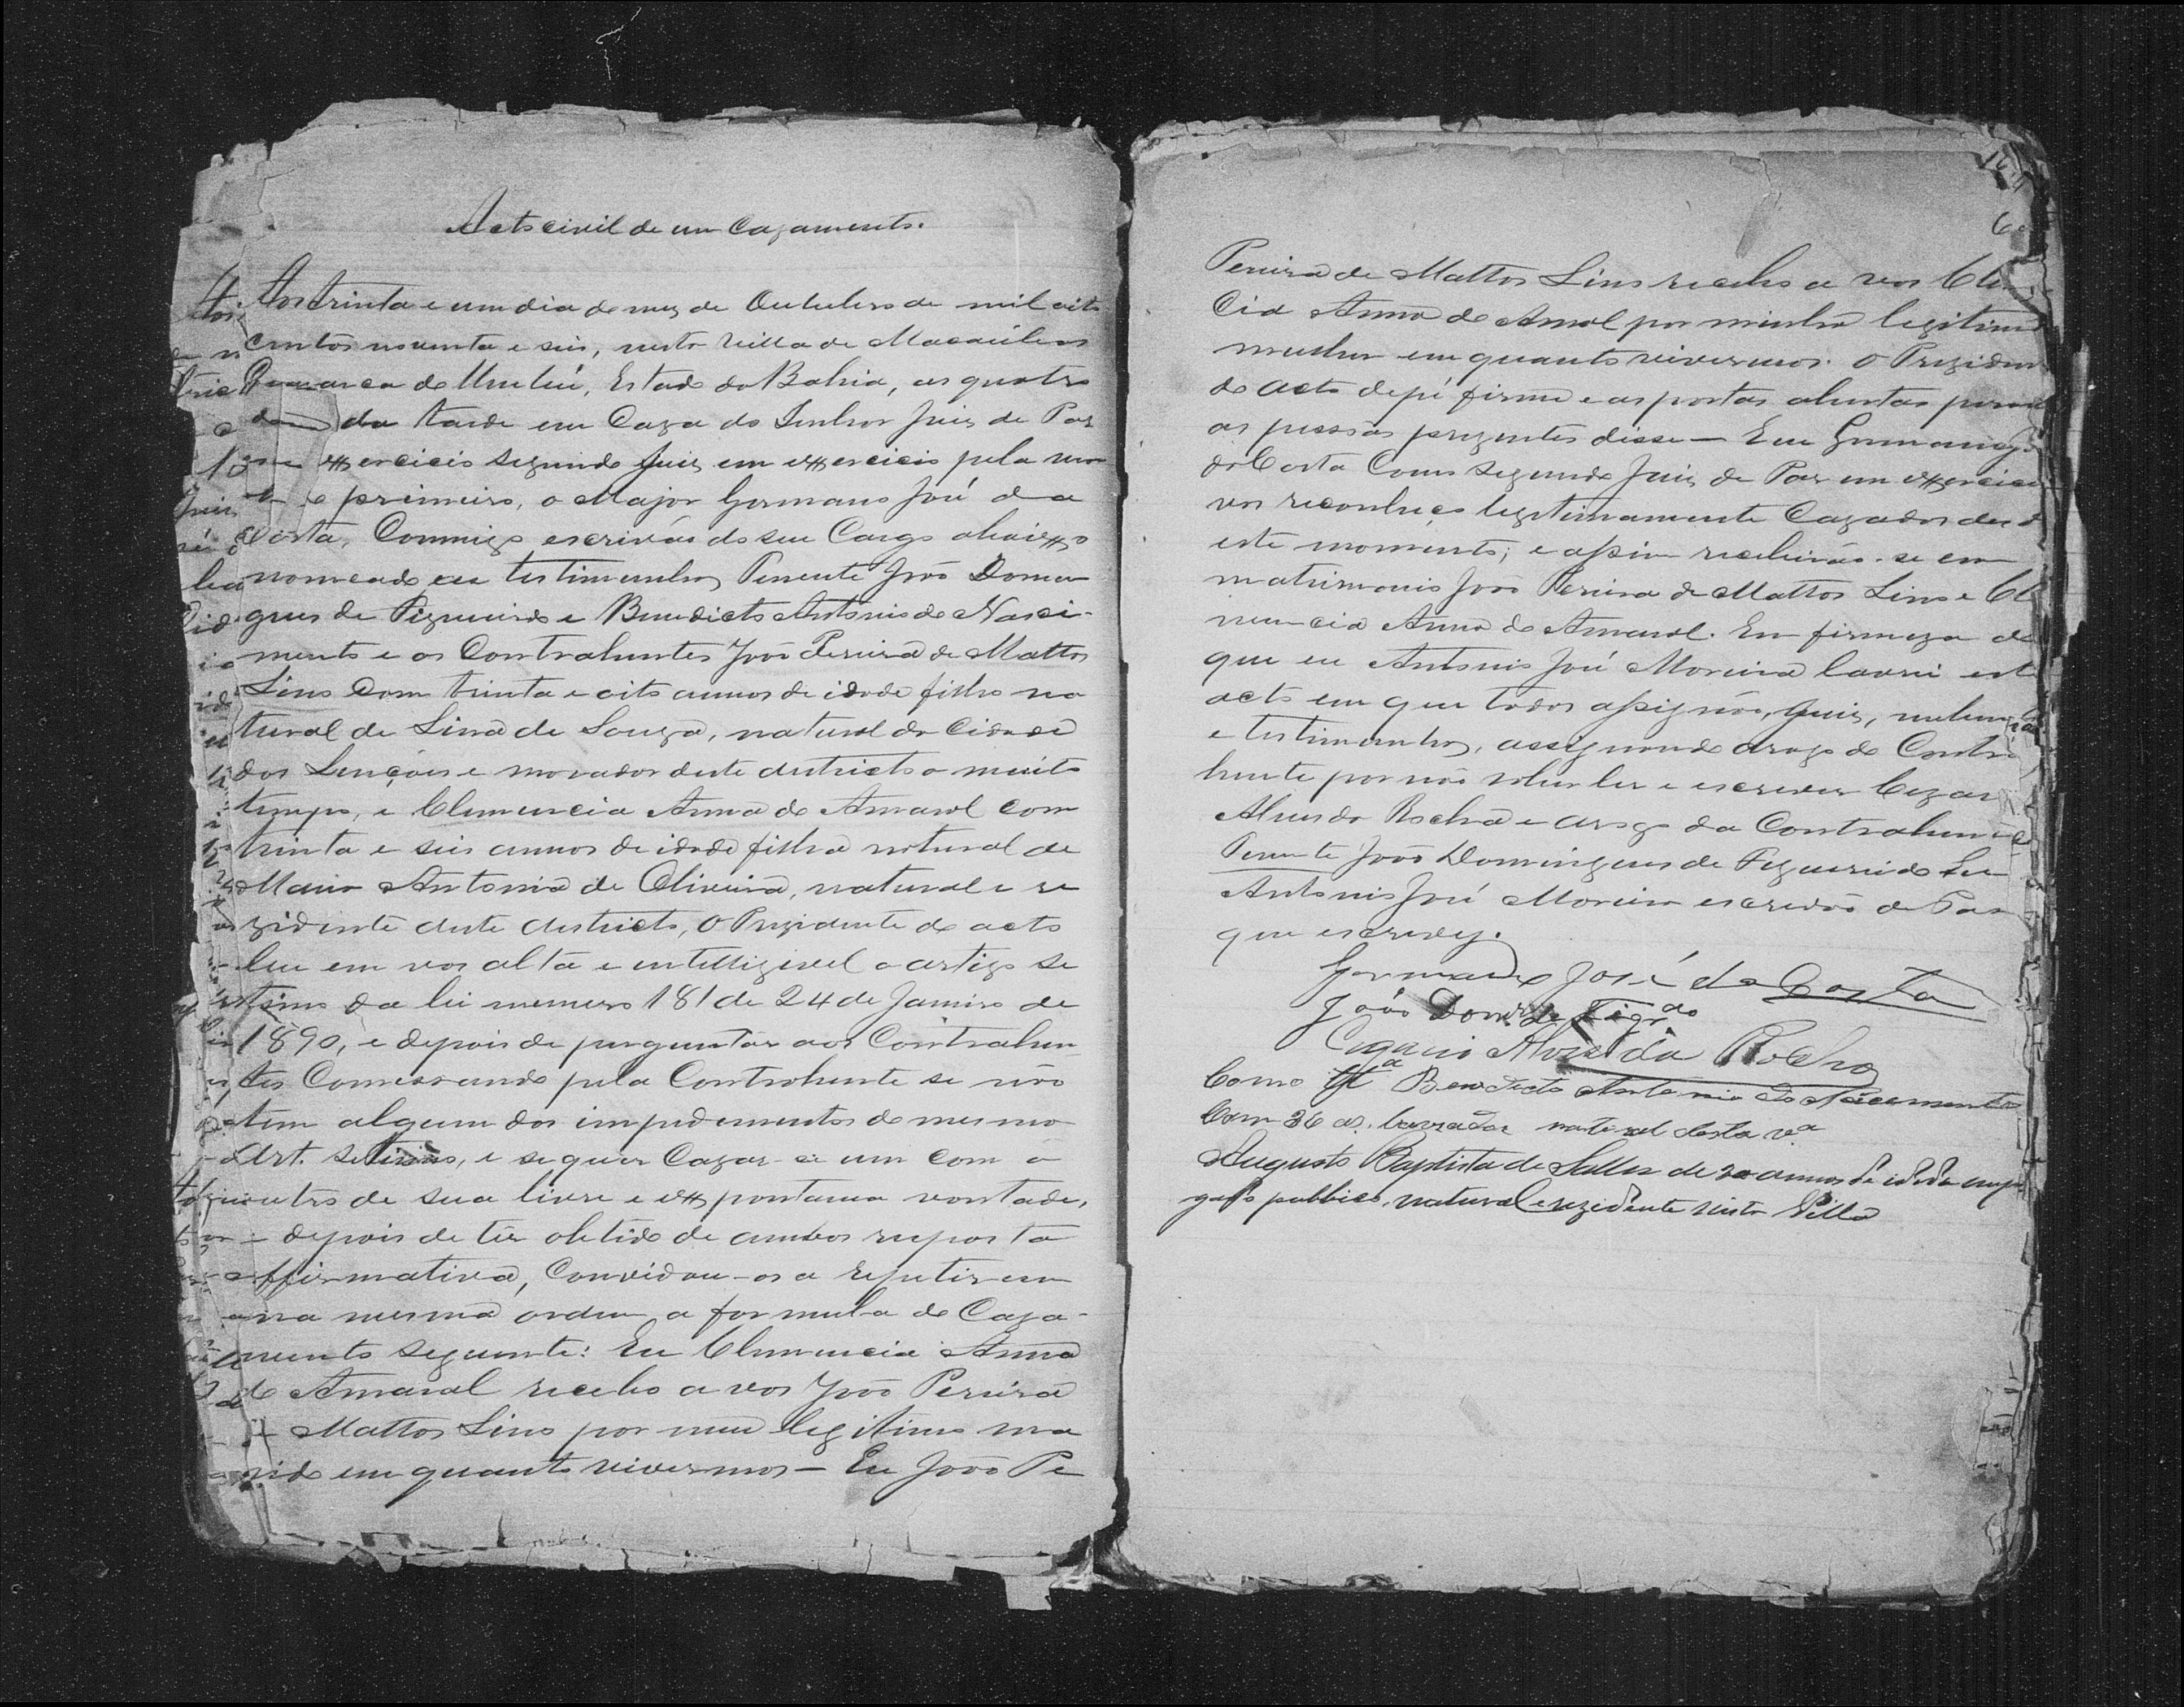 Acto civil de um Cazamento.
Aos trinta e um dia do mez de Outubro de mil oito
centos noventa e seis, nesta Villa de Macaúbas
Comarca de Urubú, Estado da Bahia, as quatro
da tarde em Caza do Senhor Juiz de Paz
em exercicio segundo Juiz em exercicio pela mor
te do primeiro, o Major Germano José da
Costa, Commigo escrivão do seu Cargo abaixo
nomeado e as testimunhas Tenente João Domin
gues de Figueiredo e Benedicto Antonio do Nasci-
mento e os Contrahentes João Pereira de Mattos
Lino com trinta e oito annos de idade filho na
tural de Lina de Souza, natural da Cidade
dos Lençóes e morador deste districto a muito
tempo, e Clemencia Anna do Amaral com
trinta e seis annos de idade filha natural de
Maria Antonia de Oliveira, natural e re
zidente deste districto, O Prezidente do acto
leu em vos alta e intelligivel o artigo se
timo da lei numero 181 de 24 de Janeiro de
1890, e depois de perguntar aos Contrahen
tes Comessando pela Contrahente se não
tem algum dos impedimentos do mesmo
Art. setimo, e se quer Cazar-se um com o
outro de sua livre e expontania vontade,
depois de ter obtido de ambos resposta
affirmativa, Convidou-os a repetirem
na mesma ordem a formula do Caza-
mento seguinte: Eu Clemencia Anna
do Amaral recebo a vos João Pereira
de Mattos Lino por meu legitimo ma
rido em quanto vivermos — Eu João Pe
6
Pereira de Mattos Lino recebo a vos Cle
cia Anna do Amal por minha legitima
mulher em quanto vivermos. O Prezidente
do acto de pé firme e as portas abertas perante
as pessoas prezentes disse — Eu Germano J.
da Costa Como segundo Juiz de Paz em exercicio
vos reconheço legitimamente Cazados desde
este momento; e assim receberão-se em
matrimonio João Pereira de Mattos Lino e Cle
mencia Anna do Amaral. Em firmeza do
que eu Antonio José Moreira lavrei este
acto em que todos assignão, Juiz,
e testimunhas, assignando arogo do Contra
hente por não saber ler e escrever Cezar
Alves da Rocha e arogo da Contrahente
Tenente João Domingues de Figueiredo Eu
Antonio José Moreira escrivão de Paz
que escrevy.
Germano José da Costa
João Doms de Figrdo
Alves da Rocha
Como tta Benedicto Antonio do Nascimento
Com 36 as. lavrador natural desta va
Augusto Baptista de Salles de 20 annos de idade empre
gado publico, natural e rezidente nesta Villa